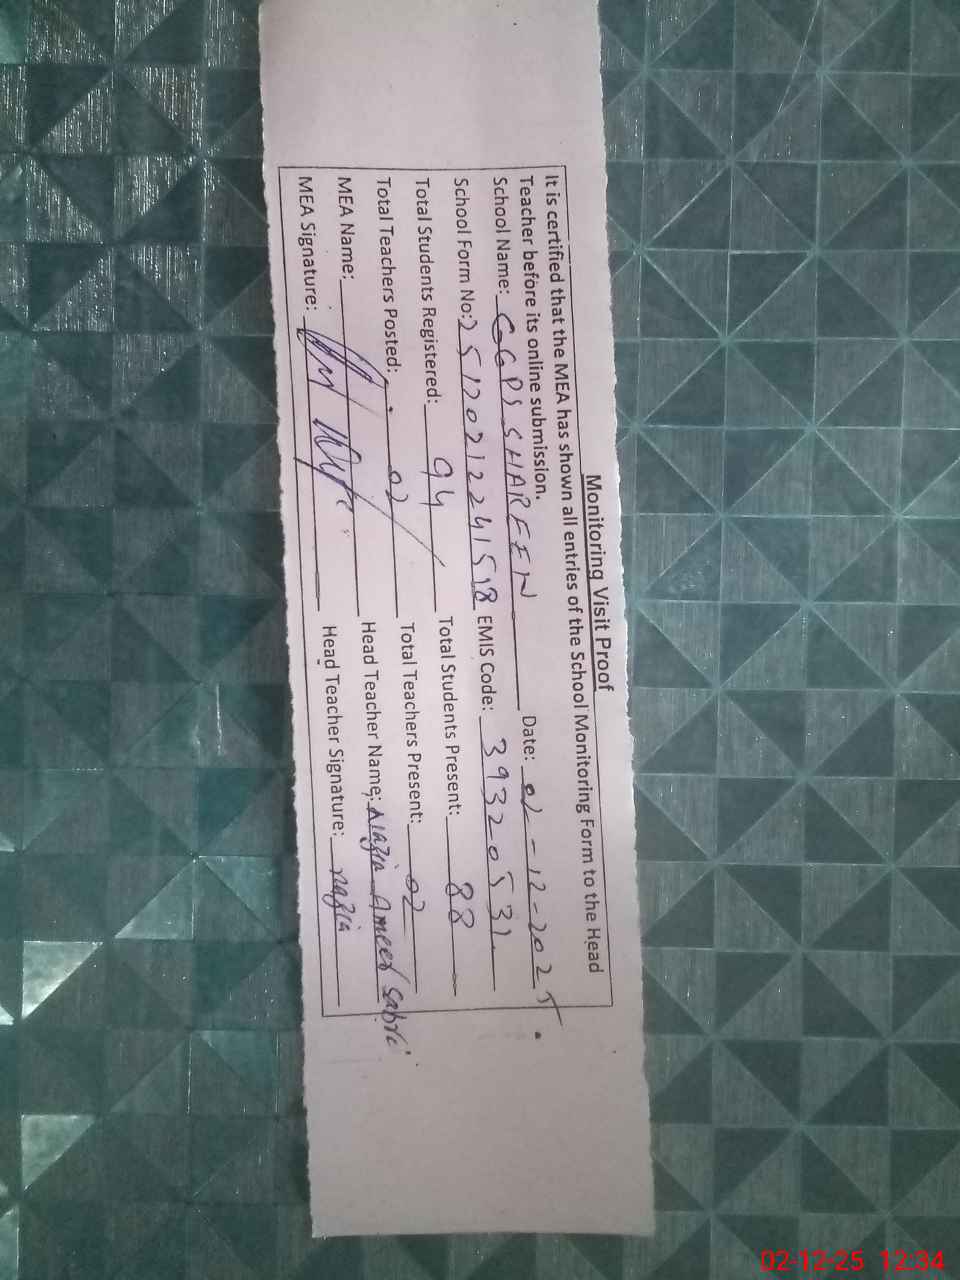 Monitoring Visit Proof
It is certified that the MEA has shown all entries of the School Monitoring Form to the Head
Teacher before its online submission.
School Name: GGPS SHAREEN Date: 02-12-2025.
School Form No: 25120212241518 EMIS Code: 39320531.
Total Students Registered: 94/ Total Students Present: 88
Total Teachers Posted: 02/ Total Teachers Present: 02
MEA Name: Head Teacher Name: Nazia Ameer Sabri
MEA Signature: Head Teacher Signature: nazia
02-12-25 12:34